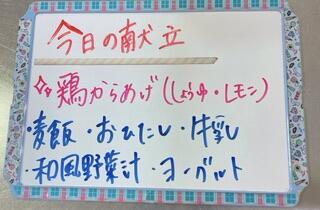 今日の献立
☆鶏からあげ(しょうゆ・レモン)
・麦飯・おひたし・牛乳
・和風野菜汁・ヨーグルト